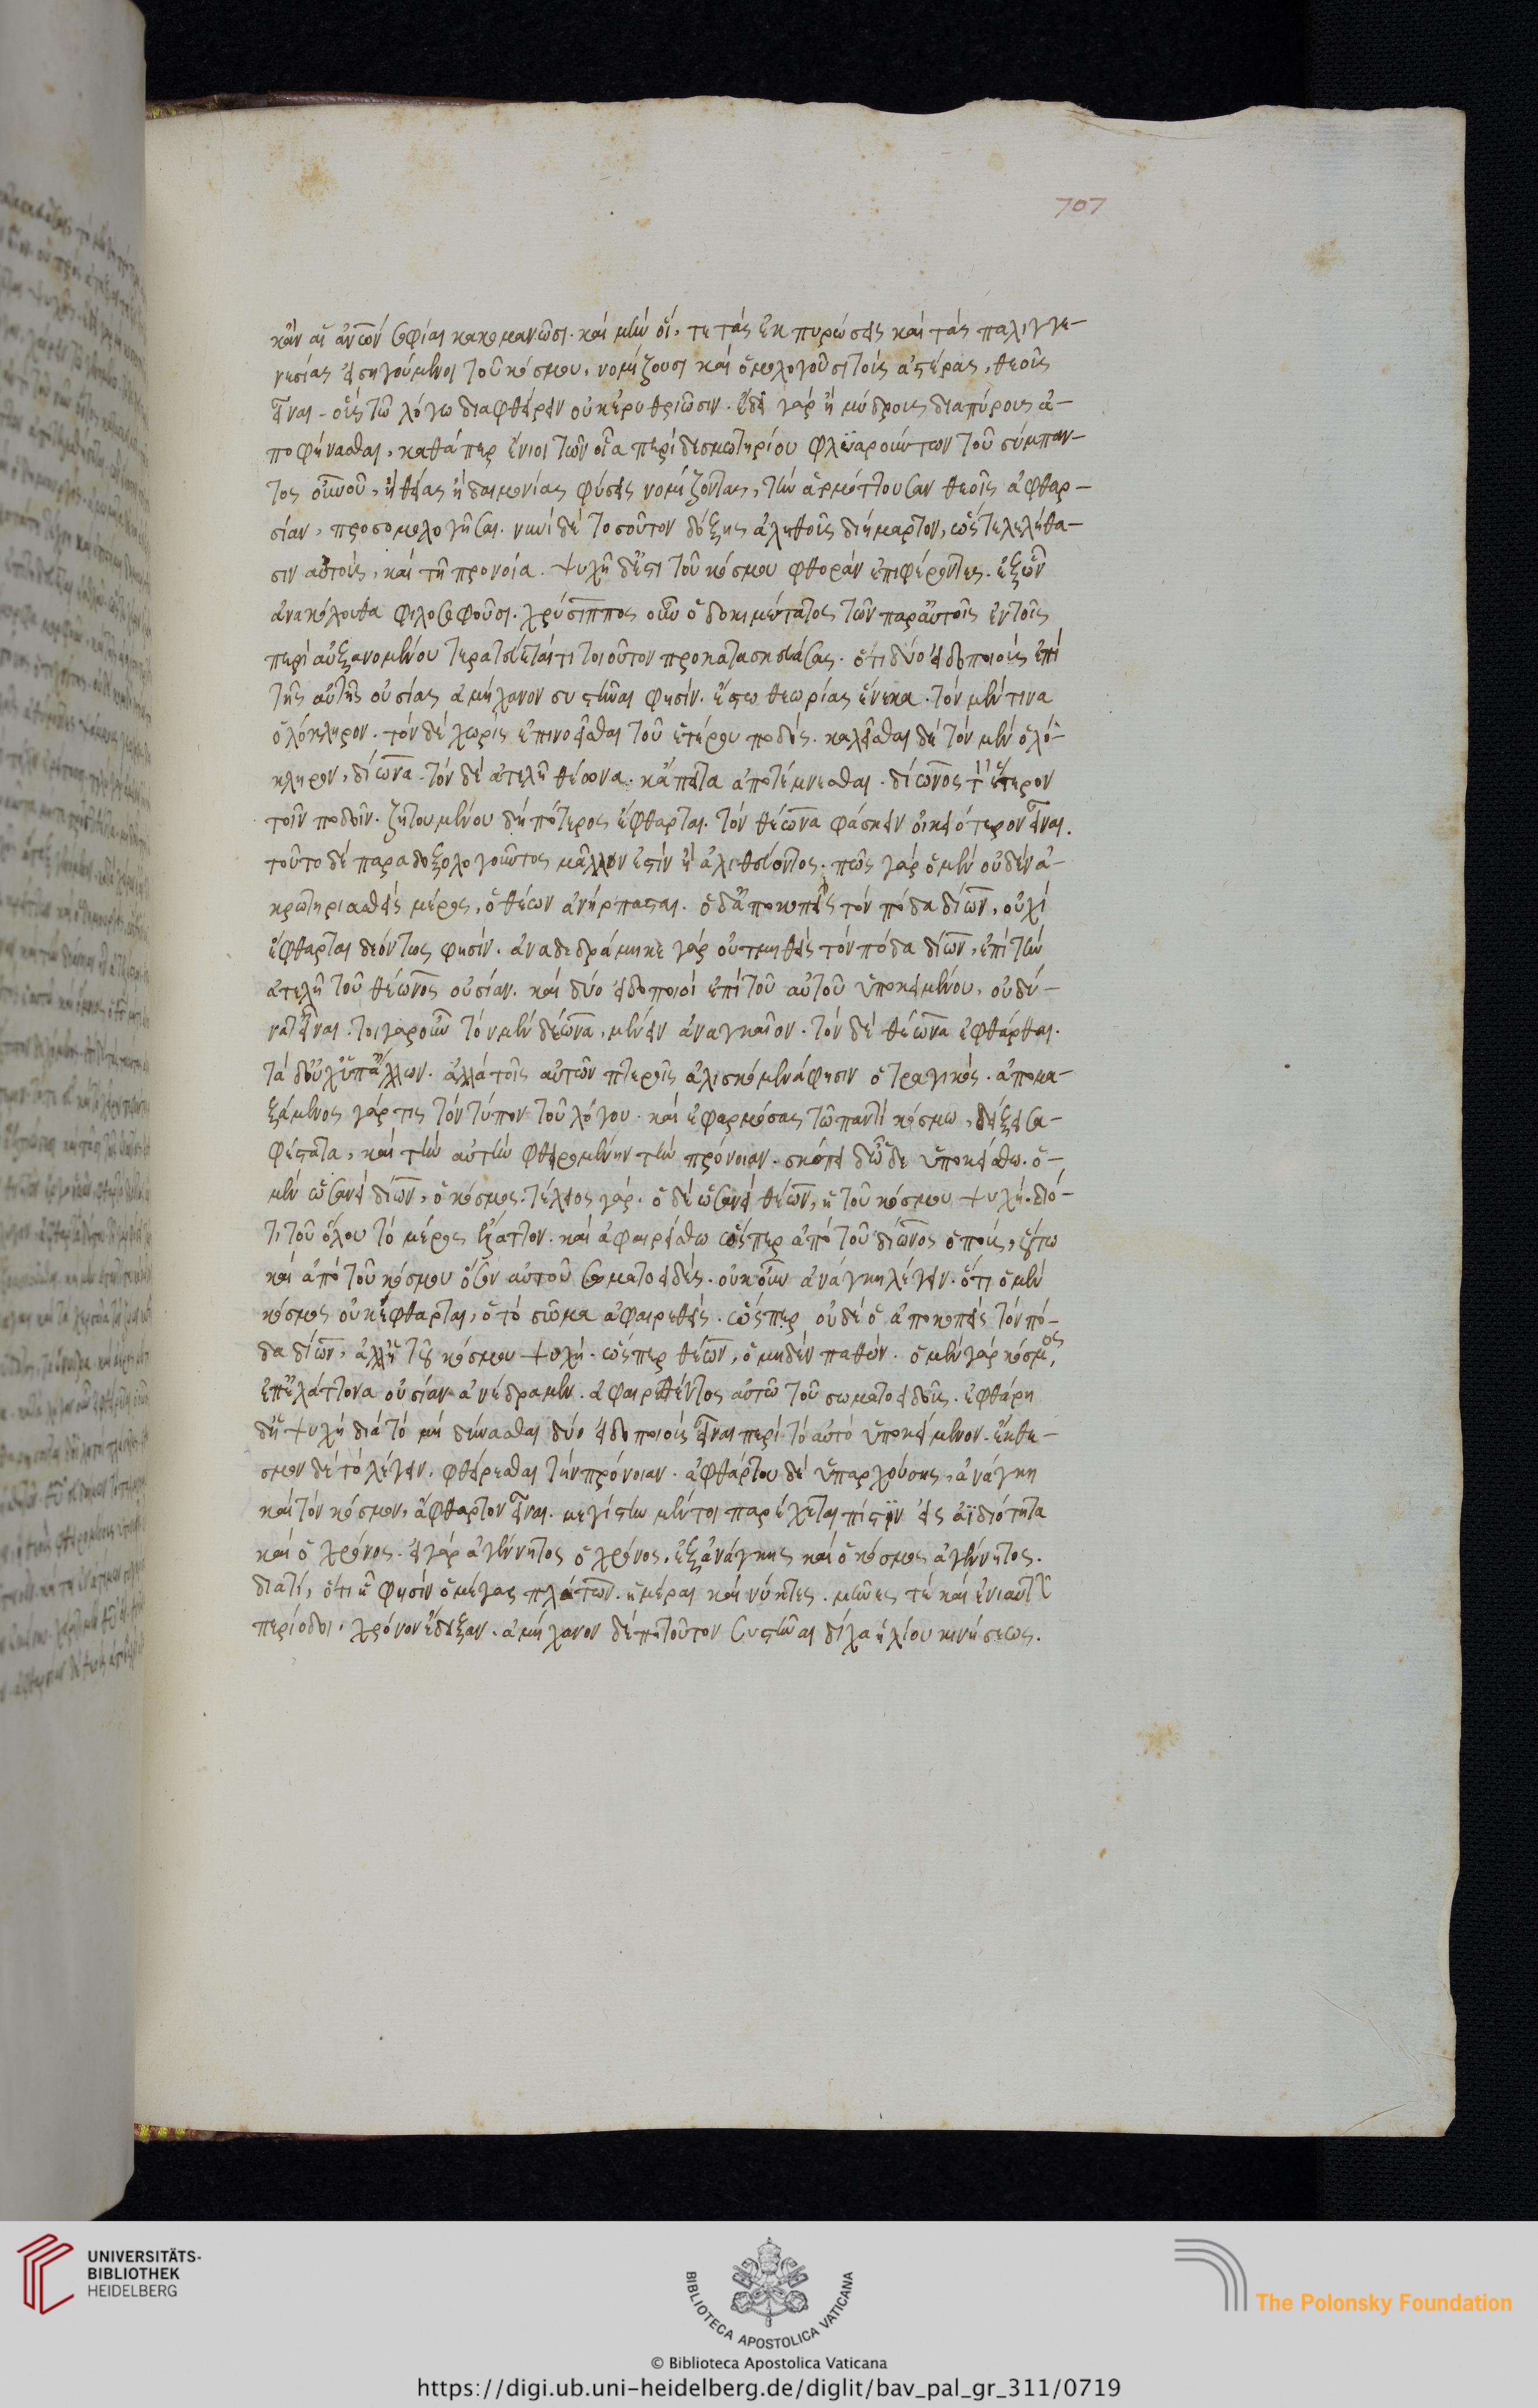 707
κἂν αἱ ἀνιῶν σοφίαι κακομανῶσι. καὶ μὴν οἵ, τε τὰς ἐκπυρώσεις καὶ τὰς παλιγγε-
νεσίας εἰσηγούμενοι τοῦ κόσμου, νομίζουσι καὶ ὁμολογοῦσι τοὺς ἀστέρας, θεοὺς
εἶναι. οὓς τῶ λόγω διαφθείρειν οὐκ ἐρυθριῶσιν. ἔδει γὰρ ἢ μύδρους διαπύρους ἀ-
ποφήνασθαι, καθάπερ ἔνιοι τῶν οἷα περὶ δεσμωτηρίου φλυαρούντων τοῦ σύμπαν-
τος οὐνοῦ, ἢ θείας ἢ δαιμονίας φύσεις νομίζοντας, τὴν ἁρμόττουσαν θεοῖς ἀφθαρ-
σίαν, προσομολογῆσαι. νυνὶ δὲ τοσοῦτον δόξης ἀληθοῦς διήμαρτον, ὥστε λελήθα-
σιν αὐτοὺς, καὶ τῆ προνοία. ψυχὴ δ' ἐστι τοῦ κόσμου φθορὰν ἐπιφέροντες. ἐξ ὧν
ἀνακόλουθα φιλοσοφοῦσι. χρύσιππος οὖν ὁ δοκιμώτατος τῶν παρ' αὐτοῖς ἐν τοῖς
περὶ αὐξανομένου τερατεύεταί τι τοιοῦτον προκατασκευάσας. ὅτι δύο εἰδοποιοὺς ἐπὶ
τῆς αὐτῆς οὐσίας ἀμήχανον συστῆναι φησίν. ἔστω θεωρίας ἕνεκα. τὸν μέν τινα
ὁλόκληρον. τὸν δὲ χωρὶς ἐπινοεῖσθαι τοῦ ἑτέρου ποδός. καλεῖσθαι δὲ τὸν μὲν ὁλό-
κληρον, δίωνα. τὸν δὲ ἀτελῆ θέωνα. κἄπειτα ἀποτέμνεσθαι. δίωνος τὸν ἕτερον
τοῖν ποδοῖν. ζητουμένου δὴ πότερος ἔφθαρται. τὸν θέωνα φάσκειν οἰκειότερον εἶναι.
τοῦτο δὲ παραδοξολογοῦντος μᾶλλον ἐστὶν ἢ ἀληθεύοντος. πῶς γὰρ ὁ μὲν οὐδὲν ἀ-
κρωτηριασθεὶς μέρος, ὁ θέων ἀνήρπασται. ὁ δ' ἀποκοπεὶς τὸν πόδα δίων, οὐχὶ
ἔφθαρται δεόντως φησίν. ἀναδεδράμηκε γὰρ οὑτμηθεὶς τὸν πόδα δίων, ἐπὶ τὴν
ἀτελῆ τοῦ θέωνος οὐσίαν. καὶ δύο εἰδοποιοὶ ἐπὶ τοῦ αὐτοῦ ὑποκειμένου, οὐ δύ-
νατ' εἶναι. τοιγαροῦν τὸν μὲν δίωνα, μένειν ἀναγκαῖον. τὸν δὲ θέωνα ἐφθάρθαι.
τὰ δ' οὐχ ὑπ' ἄλλων. ἀλλὰ τοῖς αὐτῶν πτεροῖς ἁλισκόμενα φησιν ὁ τραγικός. ἀπομα-
ξάμενος γάρ τις τὸν τύπον τοῦ λόγου. καὶ ἐφαρμόσας τῶ παντὶ κόσμω, δείξει σα-
φέστατα, καὶ τὴν αὐτὴν φθειρομένην τὴν πρόνοιαν. σκόπει δ' ὧδε ὑποκείσθω. ὁ-
μὲν ὡσανεὶ δίων, ὁ κόσμος. τέλειος γάρ. ὁ δὲ ὡσανεὶ θέων, ἡ τοῦ κόσμου ψυχή. διό-
τι τοῦ ὅλου τὸ μέρος ἔλαττον. καὶ ἀφαιρείσθω ὥσπερ ἀπὸ τοῦ δίωνος ὁ πούς, οὕτω
καὶ ἀπὸ τοῦ κόσμου ὅσον αὐτοῦ σωματοειδές. οὐκοῦν ἀνάγκη λέγειν. ὅτι ὁ μὲν
κόσμος οὐκ ἔφθαρται, ὁ τὸ σῶμα ἀφαιρεθείς. ὥσπερ οὐδὲ ὁ ἀποκοπεὶς τὸν πό-
δα δίων, ἀλλ' ἡ τοῦ κόσμου ψυχή. ὥσπερ θέων, ὁ μηδὲν παθών. ὁ μὲν γὰρ κόσμος,
ἐπ' ἐλάττονα οὐσίαν ἀνέδραμεν. ἀφαιρεθέντος αὐτῶ τοῦ σωματοειδοῦς. ἐφθάρη
δ' ἡ ψυχὴ διὰ τὸ μὴ δύνασθαι δύο εἰδοποιοὺς εἶναι περὶ τὸ αὐτὸ ὑποκείμενον. ἔκθε-
σμον δὲ τὸ λέγειν, φθείρεσθαι τὴν πρόνοιαν. ἀφθάρτου δὲ ὑπαρχούσης, ἀνάγκη
καὶ τὸν κόσμον, ἄφθαρτον εἶναι. μεγίστην μέντοι παρέχεται πίστιν εἰς ἀϊδιότητα
καὶ ὁ χρόνος. εἰ γὰρ ἀγέννητος ὁ χρόνος, ἐξ ἀνάγκης καὶ ὁ κόσμος ἀγέννητος.
διατί, ὅτι ἧ φησὶν ὁ μέγας πλάτων. ἡμέραι καὶ νύκτες. μῆνες τὲ καὶ ἐνιαυτῶν
περίοδοι. χρόνον ἔδειξαν. ἀμήχανον δέ τι τοῦτον συστῆναι δίχα ἡλίου κινήσεως.
UNIVERSITÄTS-
BIBLIOTHEK
HEIDELBERG
BIBLIOTECA APOSTOLICA VATICANA
© Biblioteca Apostolica Vaticana
The Polonsky Foundation
https://digi.ub.uni-heidelberg.de/diglit/bav_pal_gr_311/0719